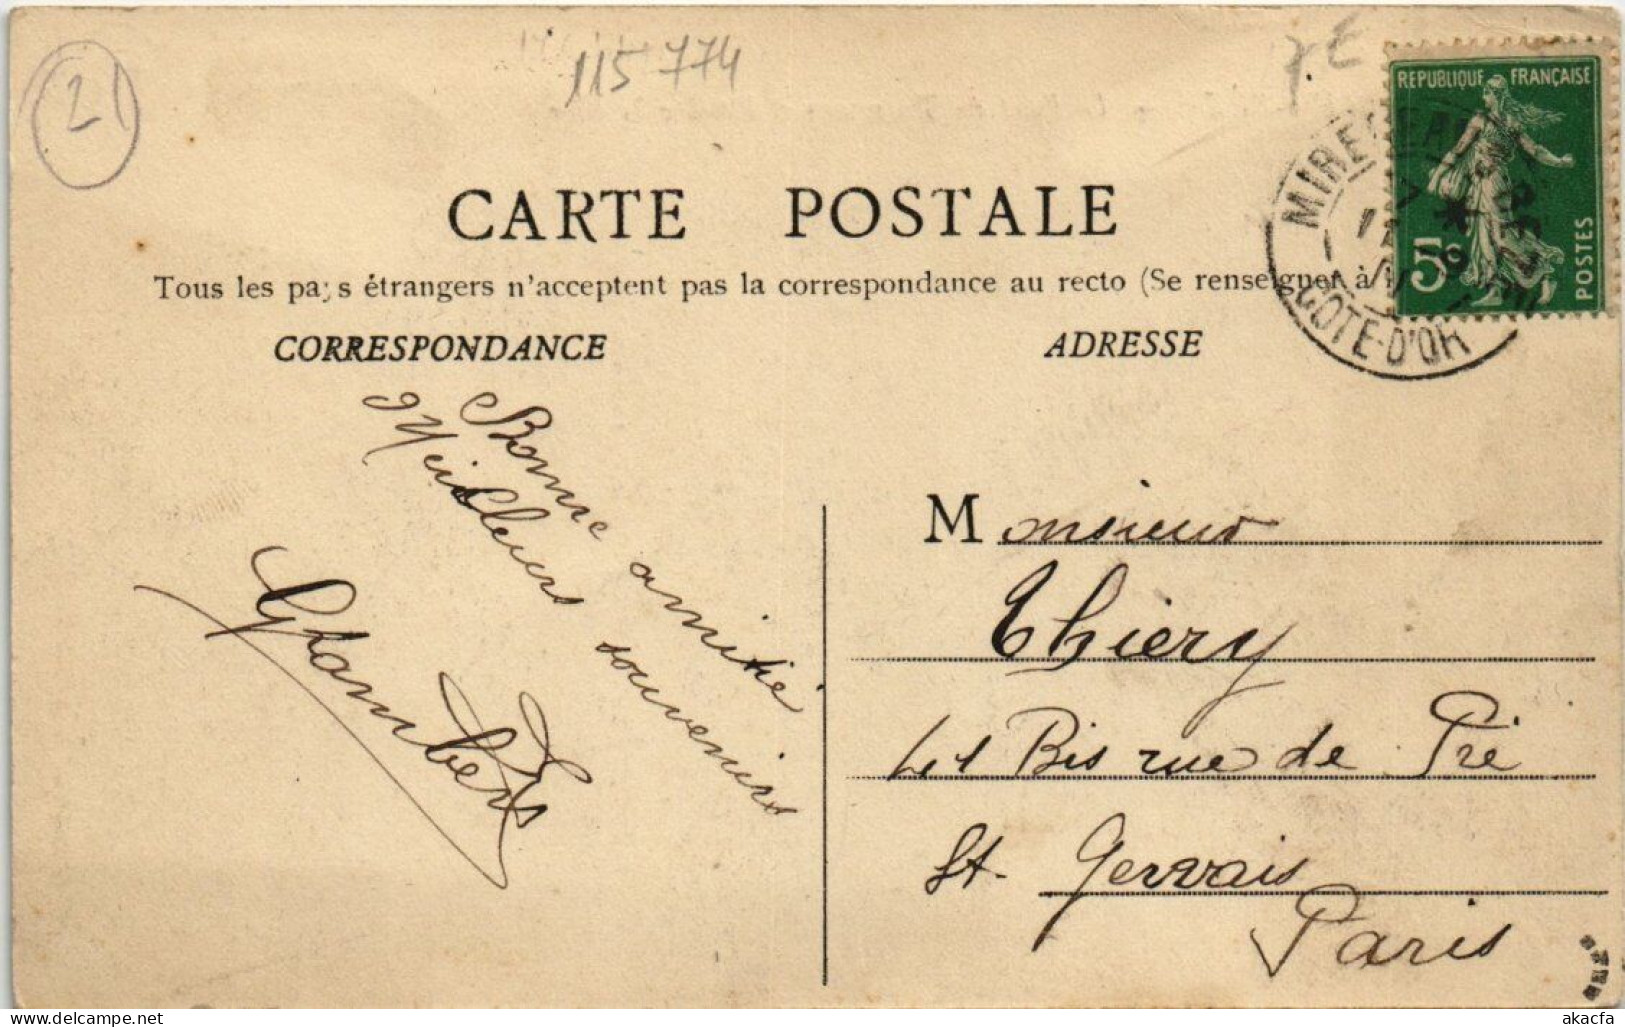 21
115 774
7 E
REPUBLIQUE FRANÇAISE
5c
POSTES
MIREBEAU
COTE-D'OR
CARTE POSTALE
Tous les pays étrangers n'acceptent pas la correspondance au recto (Se renseigner à
CORRESPONDANCE
ADRESSE
Bonne amitié
Meilleurs souvenirs
Monsieur
Thiery
bis rue de Pré
St. Gervais
Paris
akacfa